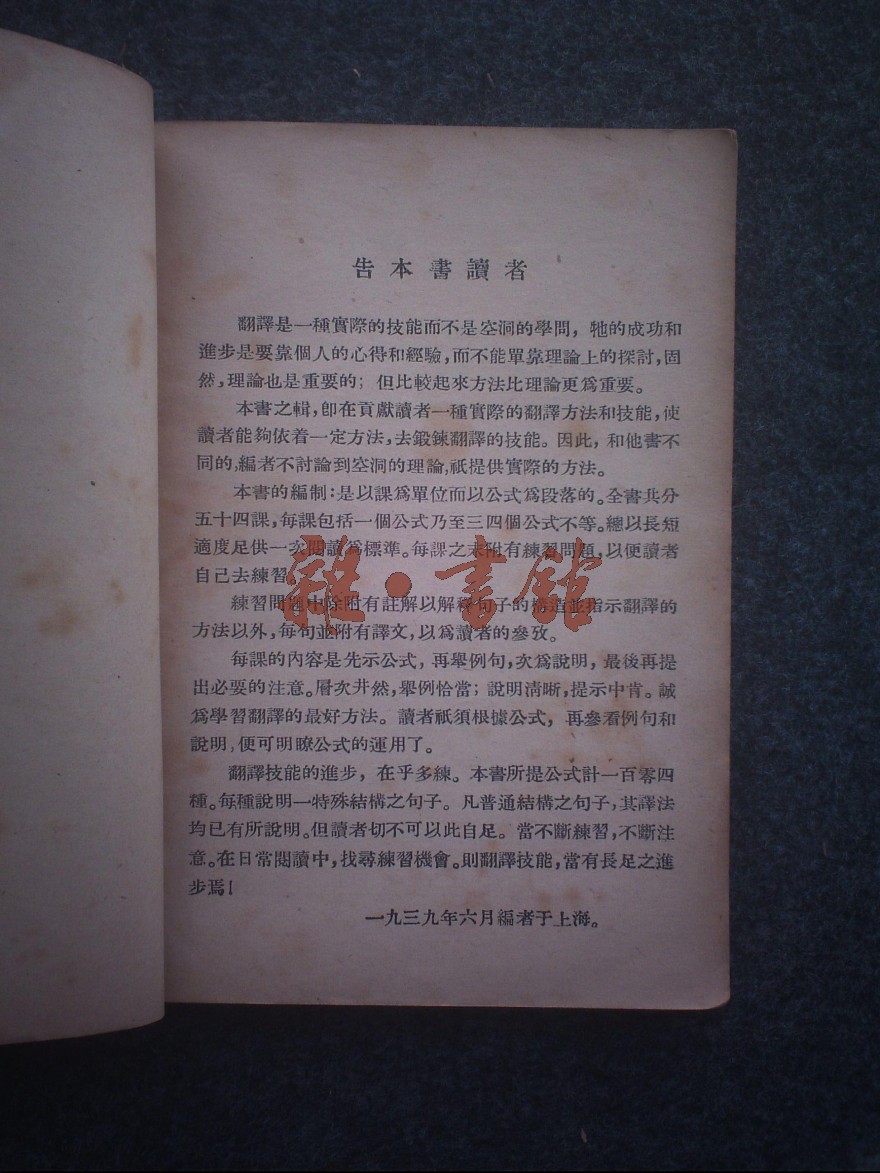 告本書讀者
翻譯是一種實際的技能而不是空洞的學問，牠的成功和
進步是要靠個人的心得和經驗，而不能單靠理論上的探討，固
然，理論也是重要的；但比較起來方法比理論更爲重要。
本書之輯，卽在貢獻讀者一種實際的翻譯方法和技能，使
讀者能夠依着一定方法，去鍛鍊翻譯的技能。因此，和他書不
同的，編者不討論到空洞的理論，祇提供實際的方法。
本書的編制：是以課爲單位而以公式爲段落的。全書共分
五十四課，每課包括一個公式乃至三四個公式不等。總以長短
適度足供一次閱讀爲標準。每課之末附有練習問題，以便讀者
自己去練習
練習問題中除附有註解以解釋句子的構造並指示翻譯的
方法以外，每句並附有譯文，以爲讀者的參攷。
每課的內容是先示公式，再舉例句，次爲說明，最後再提
出必要的注意。層次井然，舉例恰當；說明清晰，提示中肯。誠
爲學習翻譯的最好方法。讀者祇須根據公式，再參看例句和
說明，便可明瞭公式的運用了。
翻譯技能的進步，在乎多練。本書所提公式計一百零四
種。每種說明一特殊結構之句子。凡普通結構之句子，其譯法
均已有所說明。但讀者切不可以此自足。當不斷練習，不斷注
意。在日常閱讀中，找尋練習機會。則翻譯技能，當有長足之進
步焉！
一九三九年六月編者于上海。
雜·書館